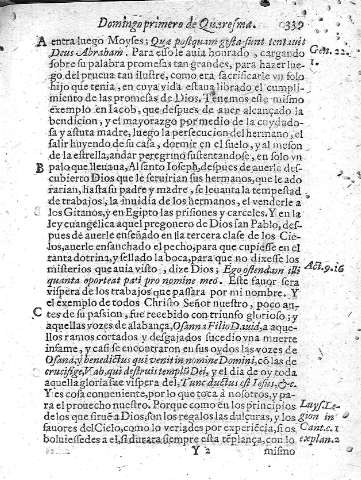 Domingo primero de Quaresma. 339
A enera luego Moyses; Quæ postquam gesta sunt tentauit
Deus Abraham. Para esso le auia honrado, cargando
sobre su palabra promesas tan grandes, para hazer lue-
go del prueua tan ilustre, como era sacrificarle vn solo
hijo que tenia, en cuya vida estaua librado el cumpli-
miento de las promesas de Dios. Tenemos este mismo
exemplo en Iacob, que despues de auer alcançado la
bendicion, y el mayorazgo por medio de la cuydado-
sa y astuta madre, luego la persecucion del hermano, el
salir huyendo de su casa, dormir en el suelo, y al meson
de la estrella, andar peregrino sustentandose, en solo vn
B palo que lleuaua. Al santo Ioseph, despues de auerle des-
cubierto Dios que le seruirian sus hermanos, que le ado
rarian, hasta su padre y madre, se leuanta la tempestad
de trabajos, la inuidia de los hermanos, el venderle a
los Gitanos, y en Egipto las prisiones y carceles. Y en la
ley euangelica aquel pregonero de Dios san Pablo, des-
pues de auerle enseñado en la tercera clase de los Cie-
los, auerle ensanchado el pecho, para que cupiesse en el
tanta dotrina, y sellado la boca, para que no dixesse los
misterios que auia visto, dize Dios; Ego ostendam illi
quanta oporteat pati pro nomine meo. Este fauor sera
vispera de los trabajos que passara por mi nombre. Y
el exemplo de todos Christo Señor nuestro, poco an-
C tes de su passion, fue recebido con triunfo glorioso; y
aquellas vozes de alabança, Osanna Filio Dauid, a aque-
llos ramos cortados y desgajados sucedio vna muerte
infame, y casi se encontraron en sus oydos las vozes de
Osana, y benedictus qui venit in nomine Domini, cõ las de
crucifige, Vah, qui destruit templũ Dei, y el dia de oy toda
aquella gloria fue vispera del, Tunc ductus est Iesus, &c.
Y es cosa conueniente, por lo que toca a nosotros, y pa-
ra el prouecho nuestro. Porque como en los principios
de los que siruẽ a Dios, son los regalos las dulçuras, y los
fauores del Cielo, como lo veriades por experiẽcia, si os
boluiessedes a el, si durara siempre esta tẽplança, con lo
Y 2 mismo
Gen. 22.
1.
Act. 9. 16
Luys. Le-
gion in
Cant. c. 1
explan. 2